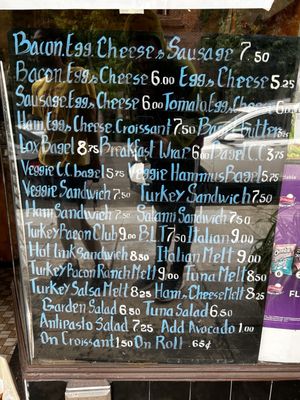 Bacon, Egg, Cheese & Sausage 7.50
Bacon, Egg & Cheese 6.00 Egg & Cheese 5.25
Sausage, Egg & Cheese 6.00 Tomato, Egg & Cheese
Ham, Egg & Cheese Croissant 7.50 Butter
Lox Bagel 8.75 Breakfast Wrap 6.00 Bagel C.C 3.75
Veggie C.C bagel 5.75 Veggie Hammus Bagel 5.75
Veggie Sandwich 7.50 Turkey Sandwich 7.50
Ham Sandwich 7.50 Salami Sandwich 7.50
Turkey Bacon Club 9.00 B.L.T 7.50 Italian 9.00
Hot Link Sandwich 8.50 Italian Melt 9.00
Turkey Bacon Ranch Melt 9.00 Tuna Melt 8.50
Turkey Salsa Melt 8.25 Ham & Cheese Melt 8.25
Garden Salad 6.50 Tuna Salad 6.50
Antipasto Salad 7.25 Add Avocado 1.00
On Croissant 1.50 On Roll .65¢
FL